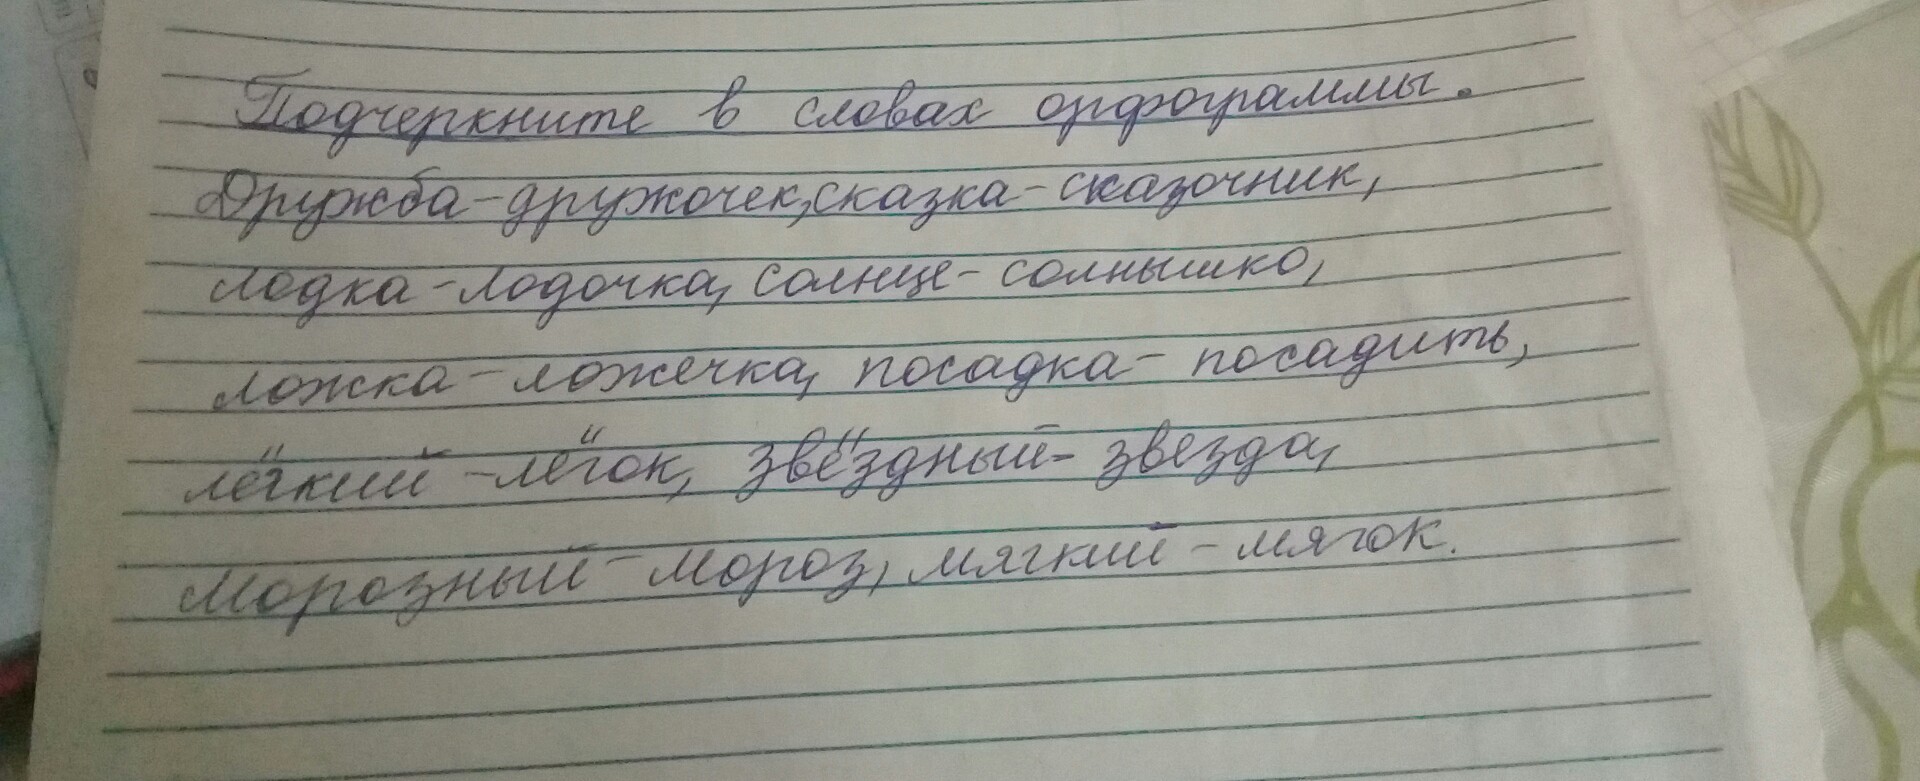 Подчеркните в словах орфограммы.
Дружба-дружочек, сказка-сказочник,
лодка-лодочка, солнце-солнышко,
ложка-ложечка, посадка-посадить,
лёгкий-лёгок, звёздный-звезда,
морозный-мороз, мягкий-мягок.